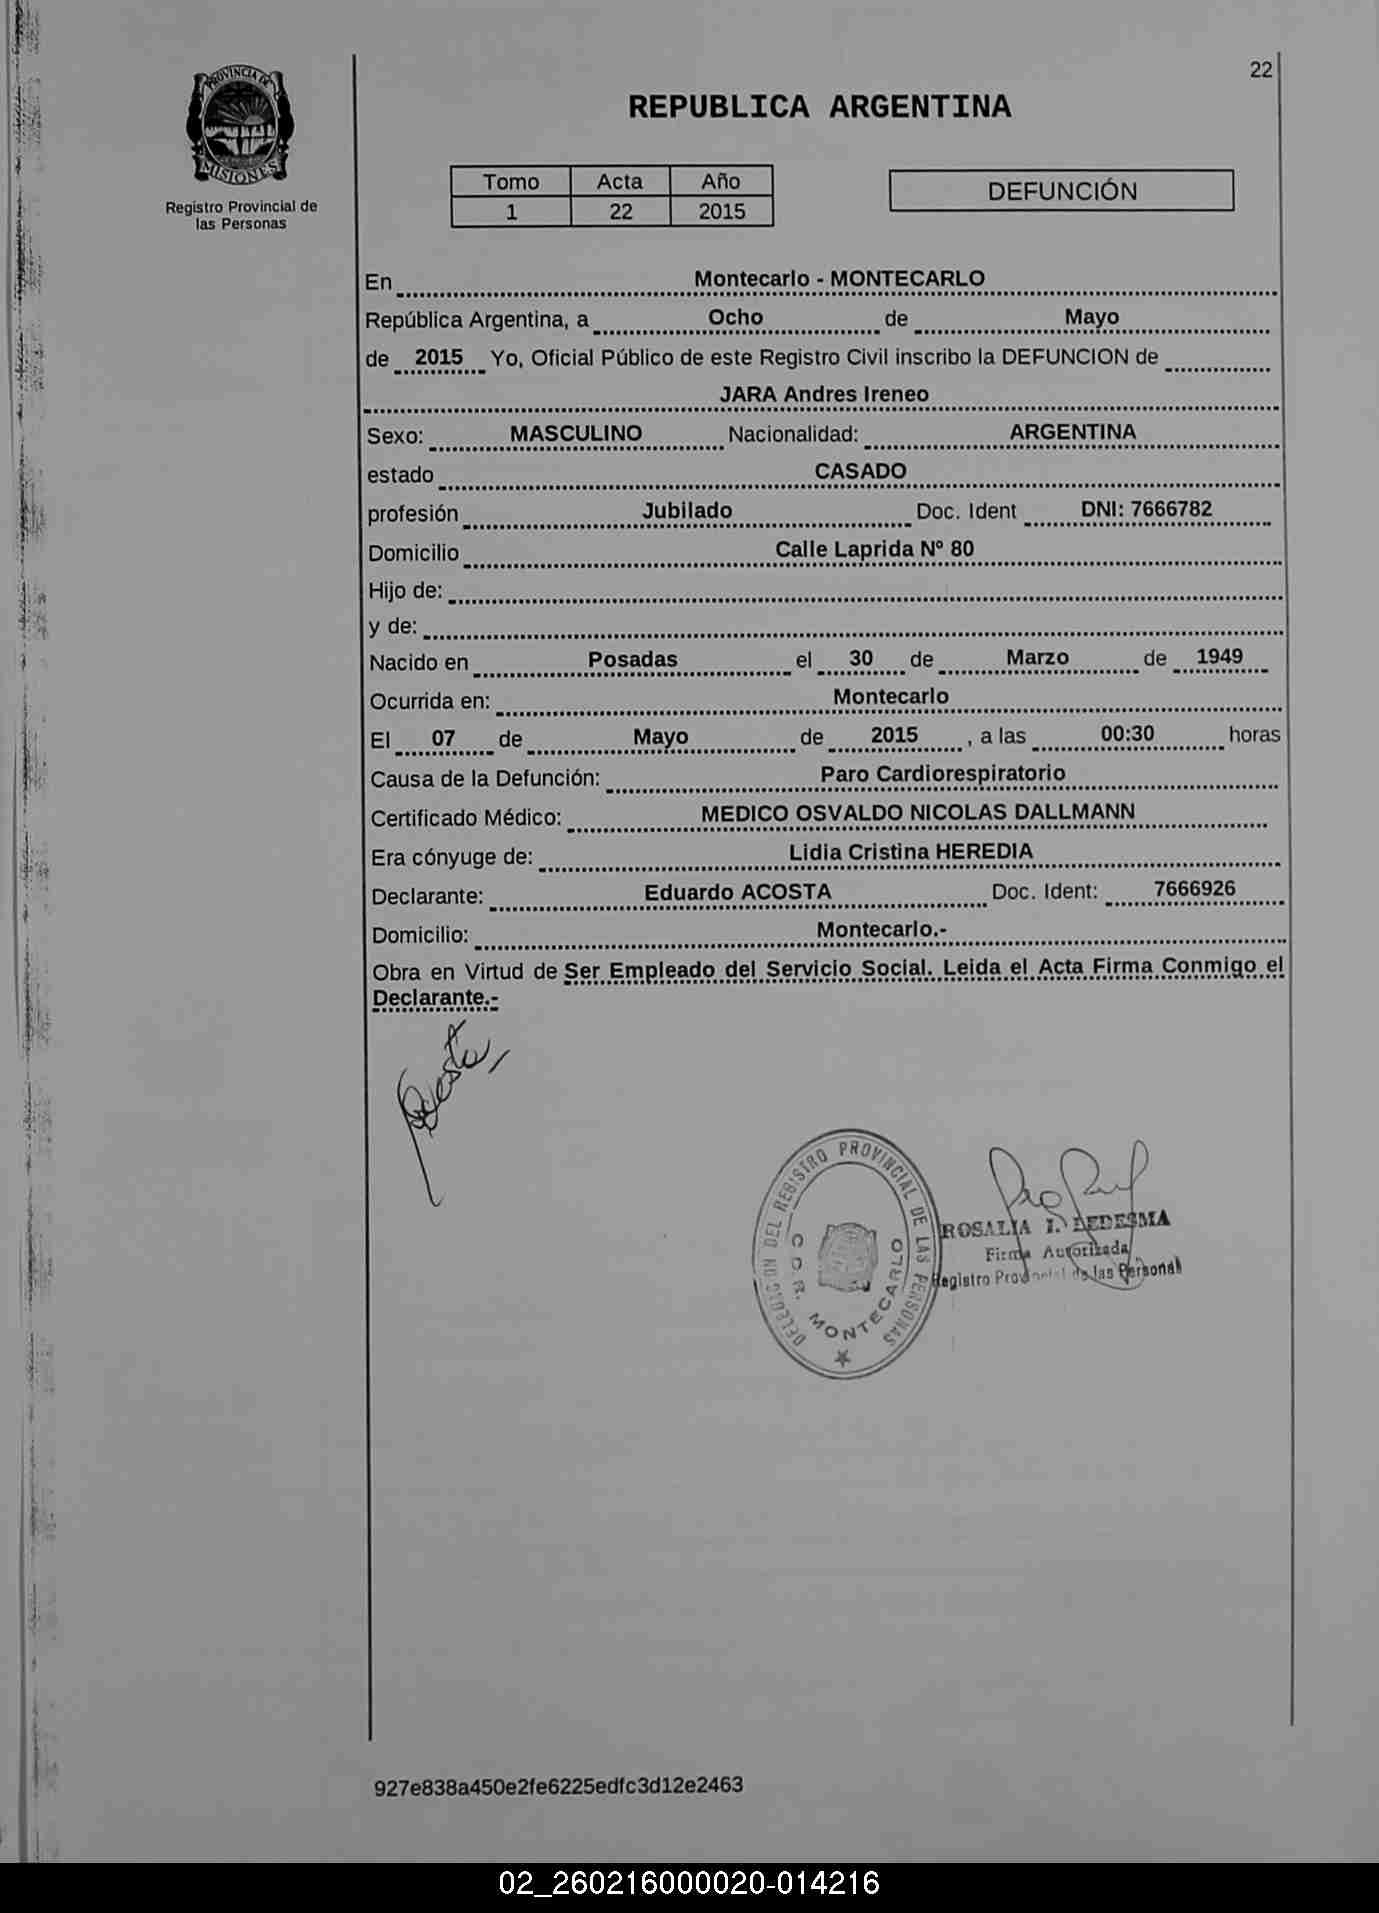 22
PROVINCIA DE
MISIONES
Registro Provincial de
las Personas
REPUBLICA ARGENTINA
Tomo Acta Año
1 22 2015
DEFUNCIÓN
En Montecarlo - MONTECARLO
República Argentina, a Ocho de Mayo
de 2015 Yo, Oficial Público de este Registro Civil inscribo la DEFUNCION de
JARA Andres Ireneo
Sexo: MASCULINO Nacionalidad: ARGENTINA
estado CASADO
profesión Jubilado Doc. Ident DNI: 7666782
Domicilio Calle Laprida Nº 80
Hijo de:
y de:
Nacido en Posadas el 30 de Marzo de 1949
Ocurrida en: Montecarlo
El 07 de Mayo de 2015 , a las 00:30 horas
Causa de la Defunción: Paro Cardiorespiratorio
Certificado Médico: MEDICO OSVALDO NICOLAS DALLMANN
Era cónyuge de: Lidia Cristina HEREDIA
Declarante: Eduardo ACOSTA Doc. Ident: 7666926
Domicilio: Montecarlo.-
Obra en Virtud de Ser Empleado del Servicio Social. Leida el Acta Firma Conmigo el
Declarante.-
Acosta
DELEGACION DEL REGISTRO PROVINCIAL DE LAS PERSONAS
C.D.R. MONTECARLO
ROSALIA I. LEDESMA
Firma Autorizada
Registro Provincial de las Personas
927e838a450e2fe6225edfc3d12e2463
02_260216000020-014216